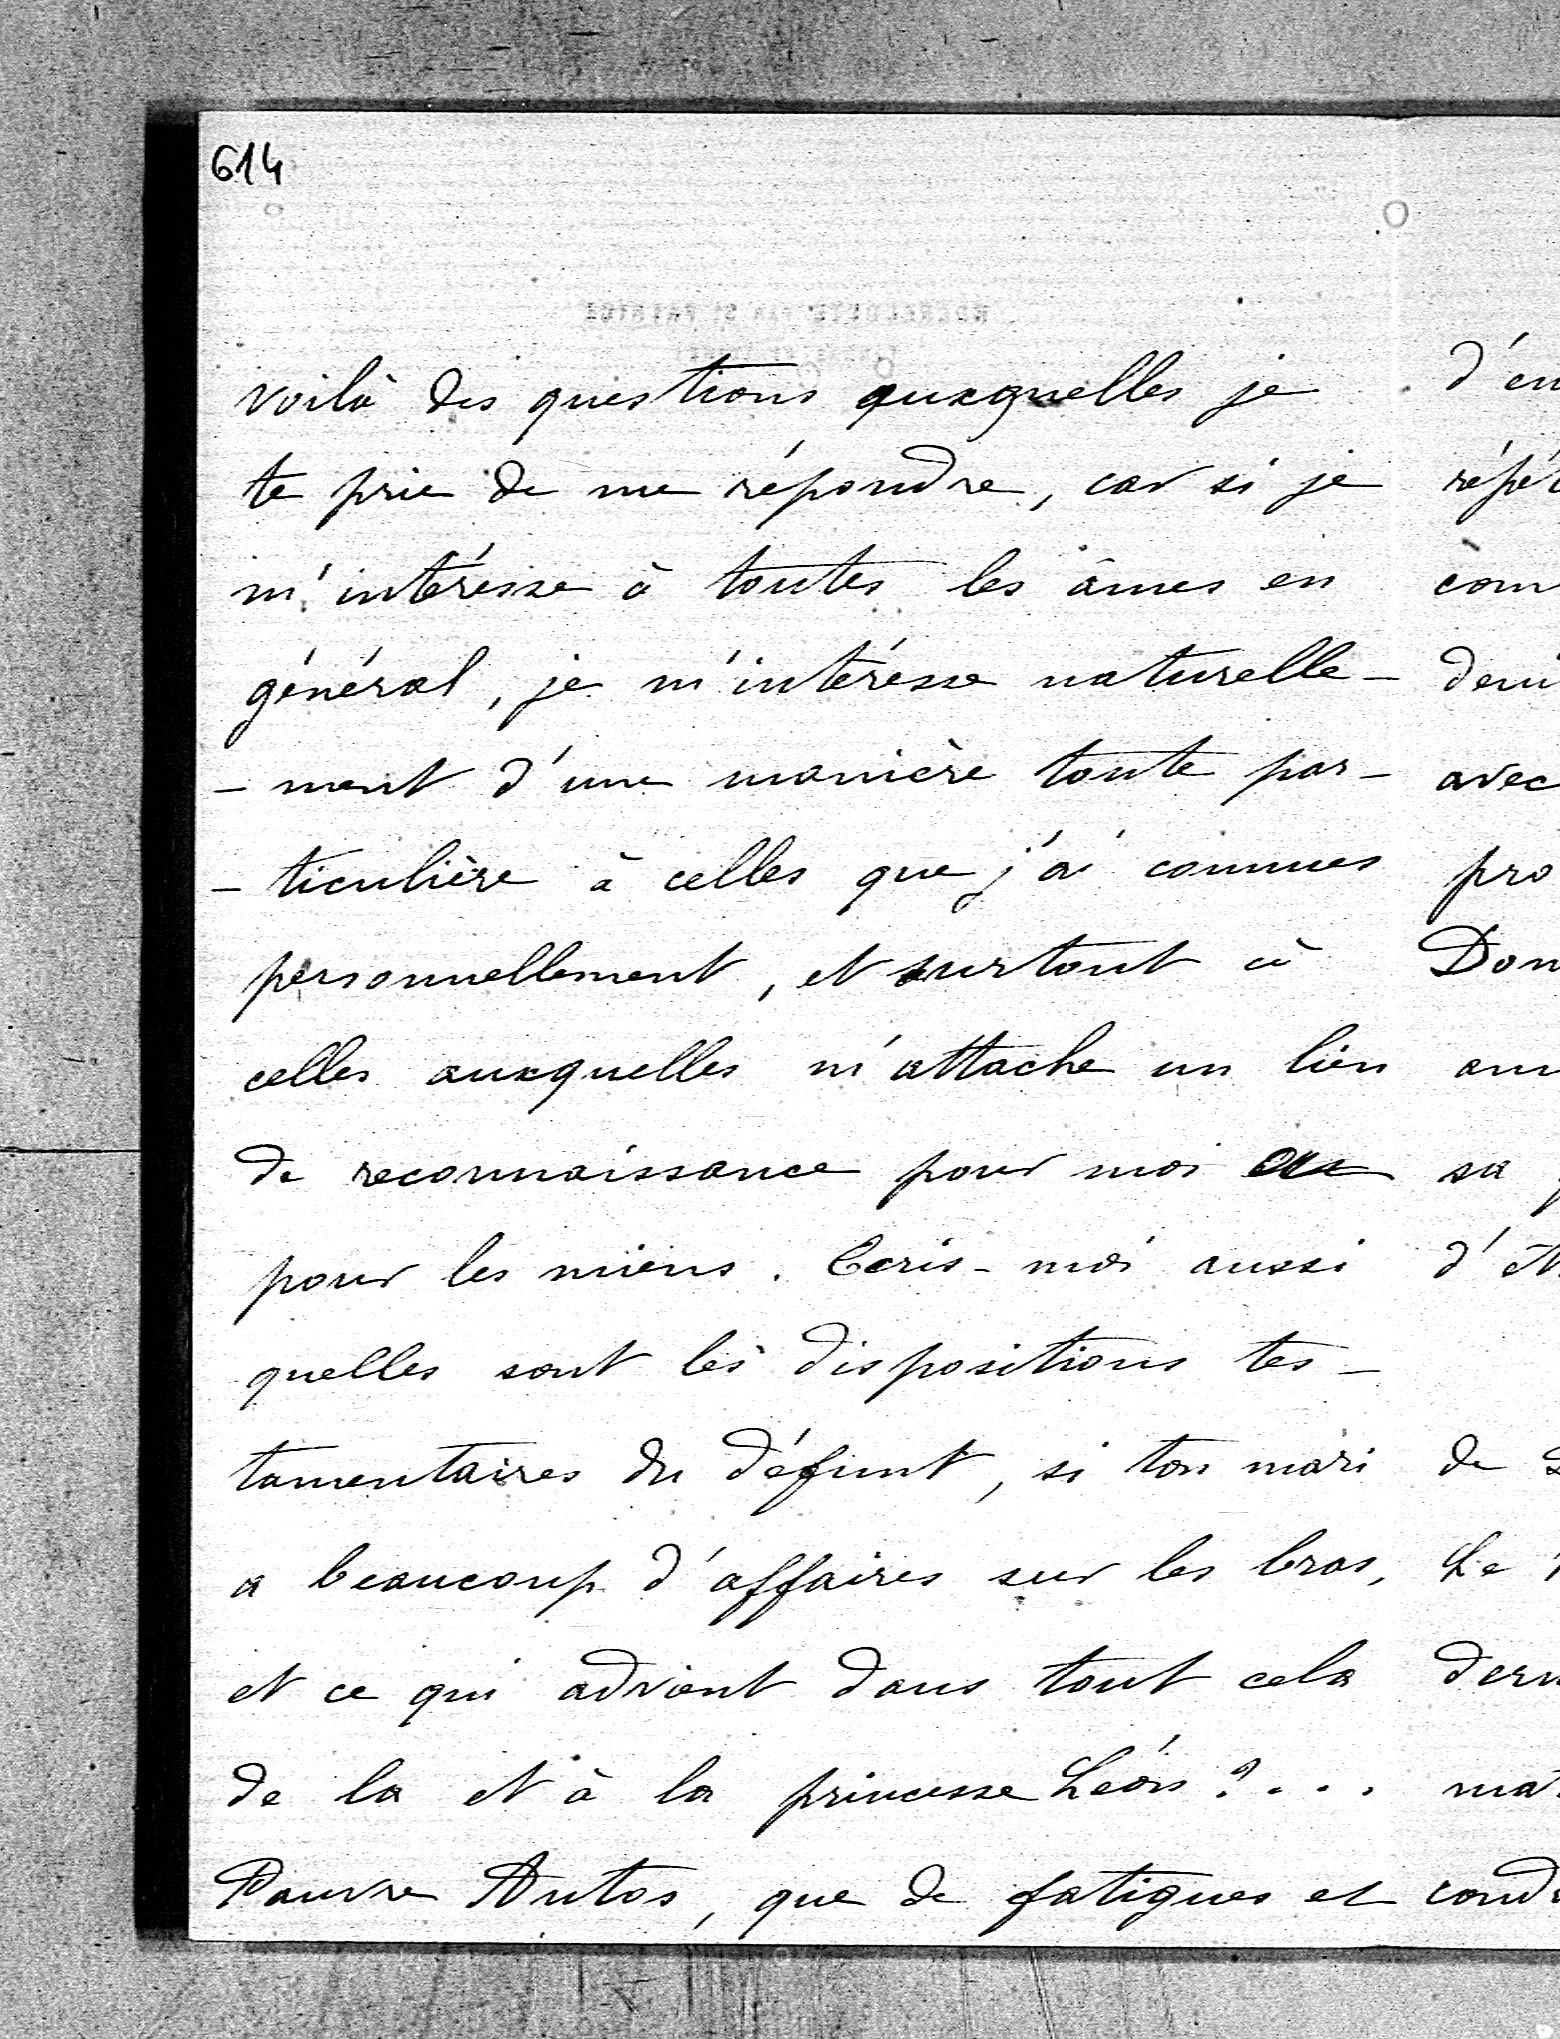 614
voilà des questions auxquelles je
te prie de me répondre, car si je
m'intéresse à toutes les âmes en
général, je m'intéresse naturelle-
- ment d'une manière toute par-
- ticulière à celles que j'ai connues
personnellement, et surtout à
celles auxquelles m'attache un lien
de reconnaissance pour moi ou
pour les miens. Ecris-moi aussi
quelles sont les dispositions tes-
tamentaires du défunt, si ton mari
a beaucoup d'affaires sur les bras,
et ce qui advient dans tout cela
de la et à la princesse Léon ?...
Pauvre Antos, que de fatigues et
d'en
répét
com
avec
pro
Don
sa
de
Le